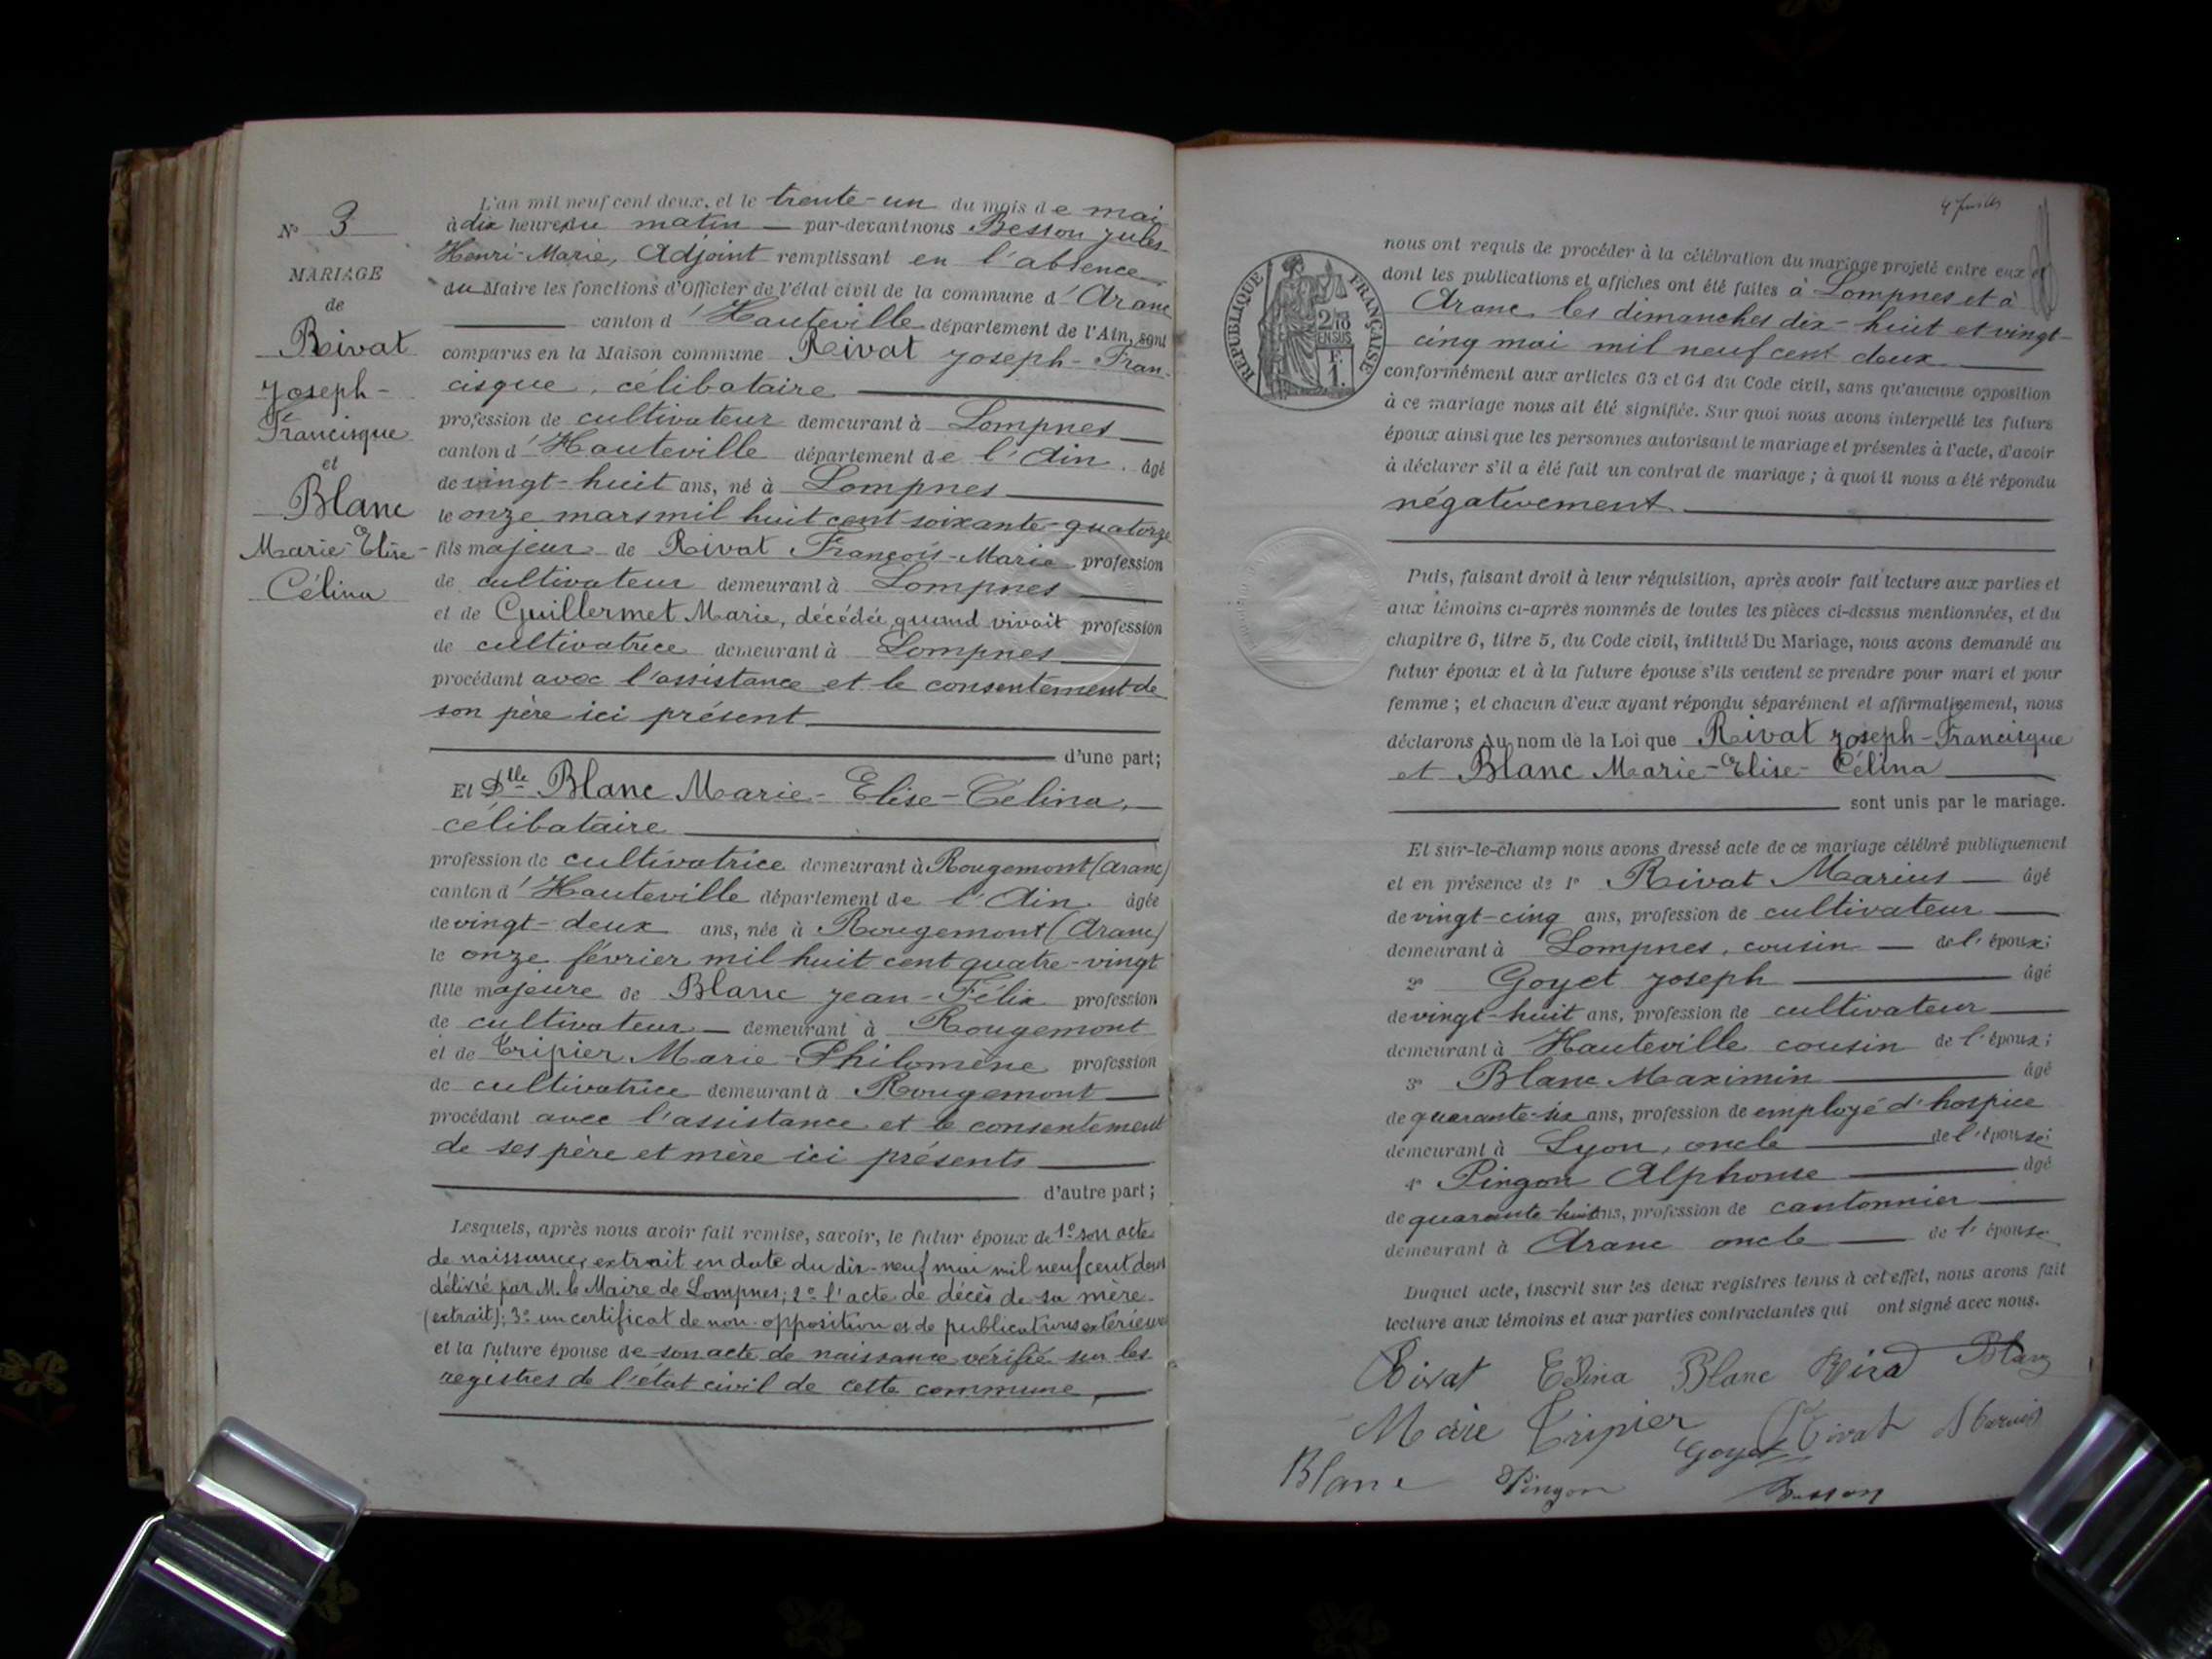 N° 3
MARIAGE
de
Rivat
Joseph-
Francisque
et
Blanc
Marie-Elise-
Célina
L'an mil neuf cent deux, et le trente-un du mois de mai
à dix heures du matin par-devant nous Besson Jules-
Henri-Marie, Adjoint remplissant en l'absence
du Maire les fonctions d'Officier de l'état civil de la commune d'Aranc
canton d'Hauteville département de l'Ain, sont
comparus en la Maison commune Rivat Joseph-Fran-
cisque, célibataire
profession de cultivateur demeurant à Lompnes
canton d'Hauteville département de l'Ain. âgé
de vingt-huit ans, né à Lompnes
le onze mars mil huit cent soixante-quatorze
fils majeur de Rivat François-Marie profession
de cultivateur demeurant à Lompnes
et de Guillermet Marie, décédée, quand vivait profession
de cultivatrice demeurant à Lompnes
procédant avec l'assistance et le consentement de
son père ici présent
d'une part;
Et Dlle Blanc Marie-Elise-Célina,
célibataire
profession de cultivatrice demeurant à Rougemont (Aranc)
canton d'Hauteville département de l'Ain. âgée
de vingt-deux ans, née à Rougemont (Aranc)
le onze février mil huit cent quatre-vingt
fille majeure de Blanc Jean-Félix profession
de cultivateur demeurant à Rougemont
et de Tripier Marie-Philomène profession
de cultivatrice demeurant à Rougemont
procédant avec l'assistance et le consentement
de ses père et mère ici présents
d'autre part;
Lesquels, après nous avoir fait remise, savoir, le futur époux de 1° son acte
de naissance, extrait en date du dix-neuf mai mil neuf cent deux
délivré par M. le Maire de Lompnes; 2° l'acte de décès de sa mère
(extrait); 3° un certificat de non-opposition et de publications extérieures
et la future épouse de son acte de naissance vérifié sur les
registres de l'état civil de cette commune,
RÉPUBLIQUE FRANÇAISE
2/10
EN SUS
F.
1.
nous ont requis de procéder à la célébration du mariage projeté entre eux et
dont les publications et affiches ont été faites à Lompnes et à
Aranc les dimanches dix-huit et vingt-
cinq mai mil neuf cent deux
conformément aux articles 63 et 64 du Code civil, sans qu'aucune opposition
à ce mariage nous ait été signifiée. Sur quoi nous avons interpellé les futurs
époux ainsi que les personnes autorisant le mariage et présentes à l'acte, d'avoir
à déclarer s'il a été fait un contrat de mariage; à quoi il nous a été répondu
négativement
Puis, faisant droit à leur réquisition, après avoir fait lecture aux parties et
aux témoins ci-après nommés de toutes les pièces ci-dessus mentionnées, et du
chapitre 6, titre 5, du Code civil, intitulé Du Mariage, nous avons demandé au
futur époux et à la future épouse s'ils veulent se prendre pour mari et pour
femme; et chacun d'eux ayant répondu séparément et affirmativement, nous
déclarons Au nom de la Loi que Rivat Joseph-Francisque
et Blanc Marie-Elise-Célina
sont unis par le mariage.
Et sur-le-champ nous avons dressé acte de ce mariage célébré publiquement
et en présence de 1° Rivat Marius âgé
de vingt-cinq ans, profession de cultivateur
demeurant à Lompnes, cousin de l'époux;
2° Goyet Joseph âgé
de vingt-huit ans, profession de cultivateur
demeurant à Hauteville cousin de l'époux;
3° Blanc Maximin âgé
de quarante-six ans, profession de employé d'hospice
demeurant à Lyon, oncle de l'épouse;
4° Pingon Alphonse âgé
de quarante-huit ans, profession de cantonnier
demeurant à Aranc oncle de l'épouse
Duquel acte, inscrit sur les deux registres tenus à cet effet, nous avons fait
lecture aux témoins et aux parties contractantes qui ont signé avec nous.
Rivat Célina Blanc Rivat Blanc
Marie Tripier Rivat Marius
Goyet
Blanc Pingon Besson